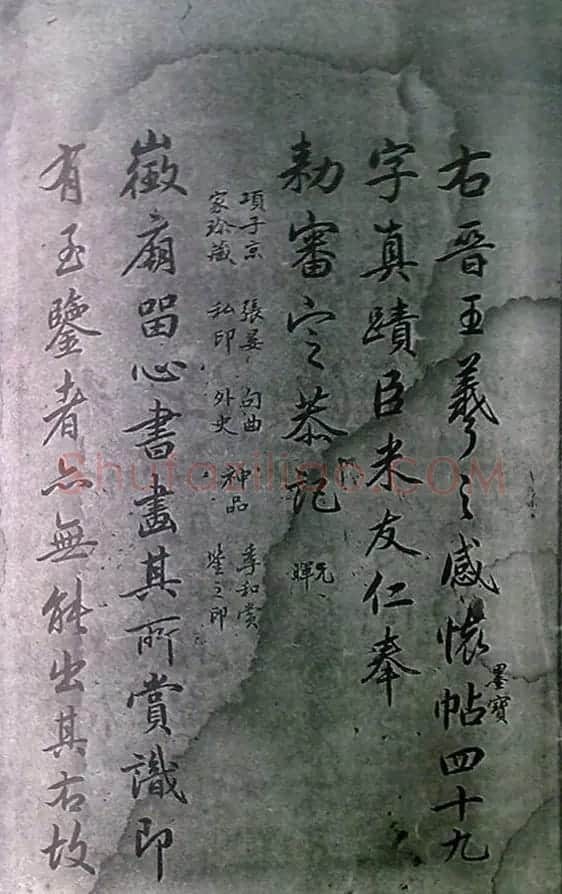 右晉王羲之感懷帖四十九
墨寶
字真蹟臣米友仁奉
勅審定恭記
元暉
項子京家珍藏
張晏私印
句曲外史
神品
季和賞鑒之印
徽廟留心書畫其所賞識即
有至鑒者亦無能出其右故
Shufaziliao.COM